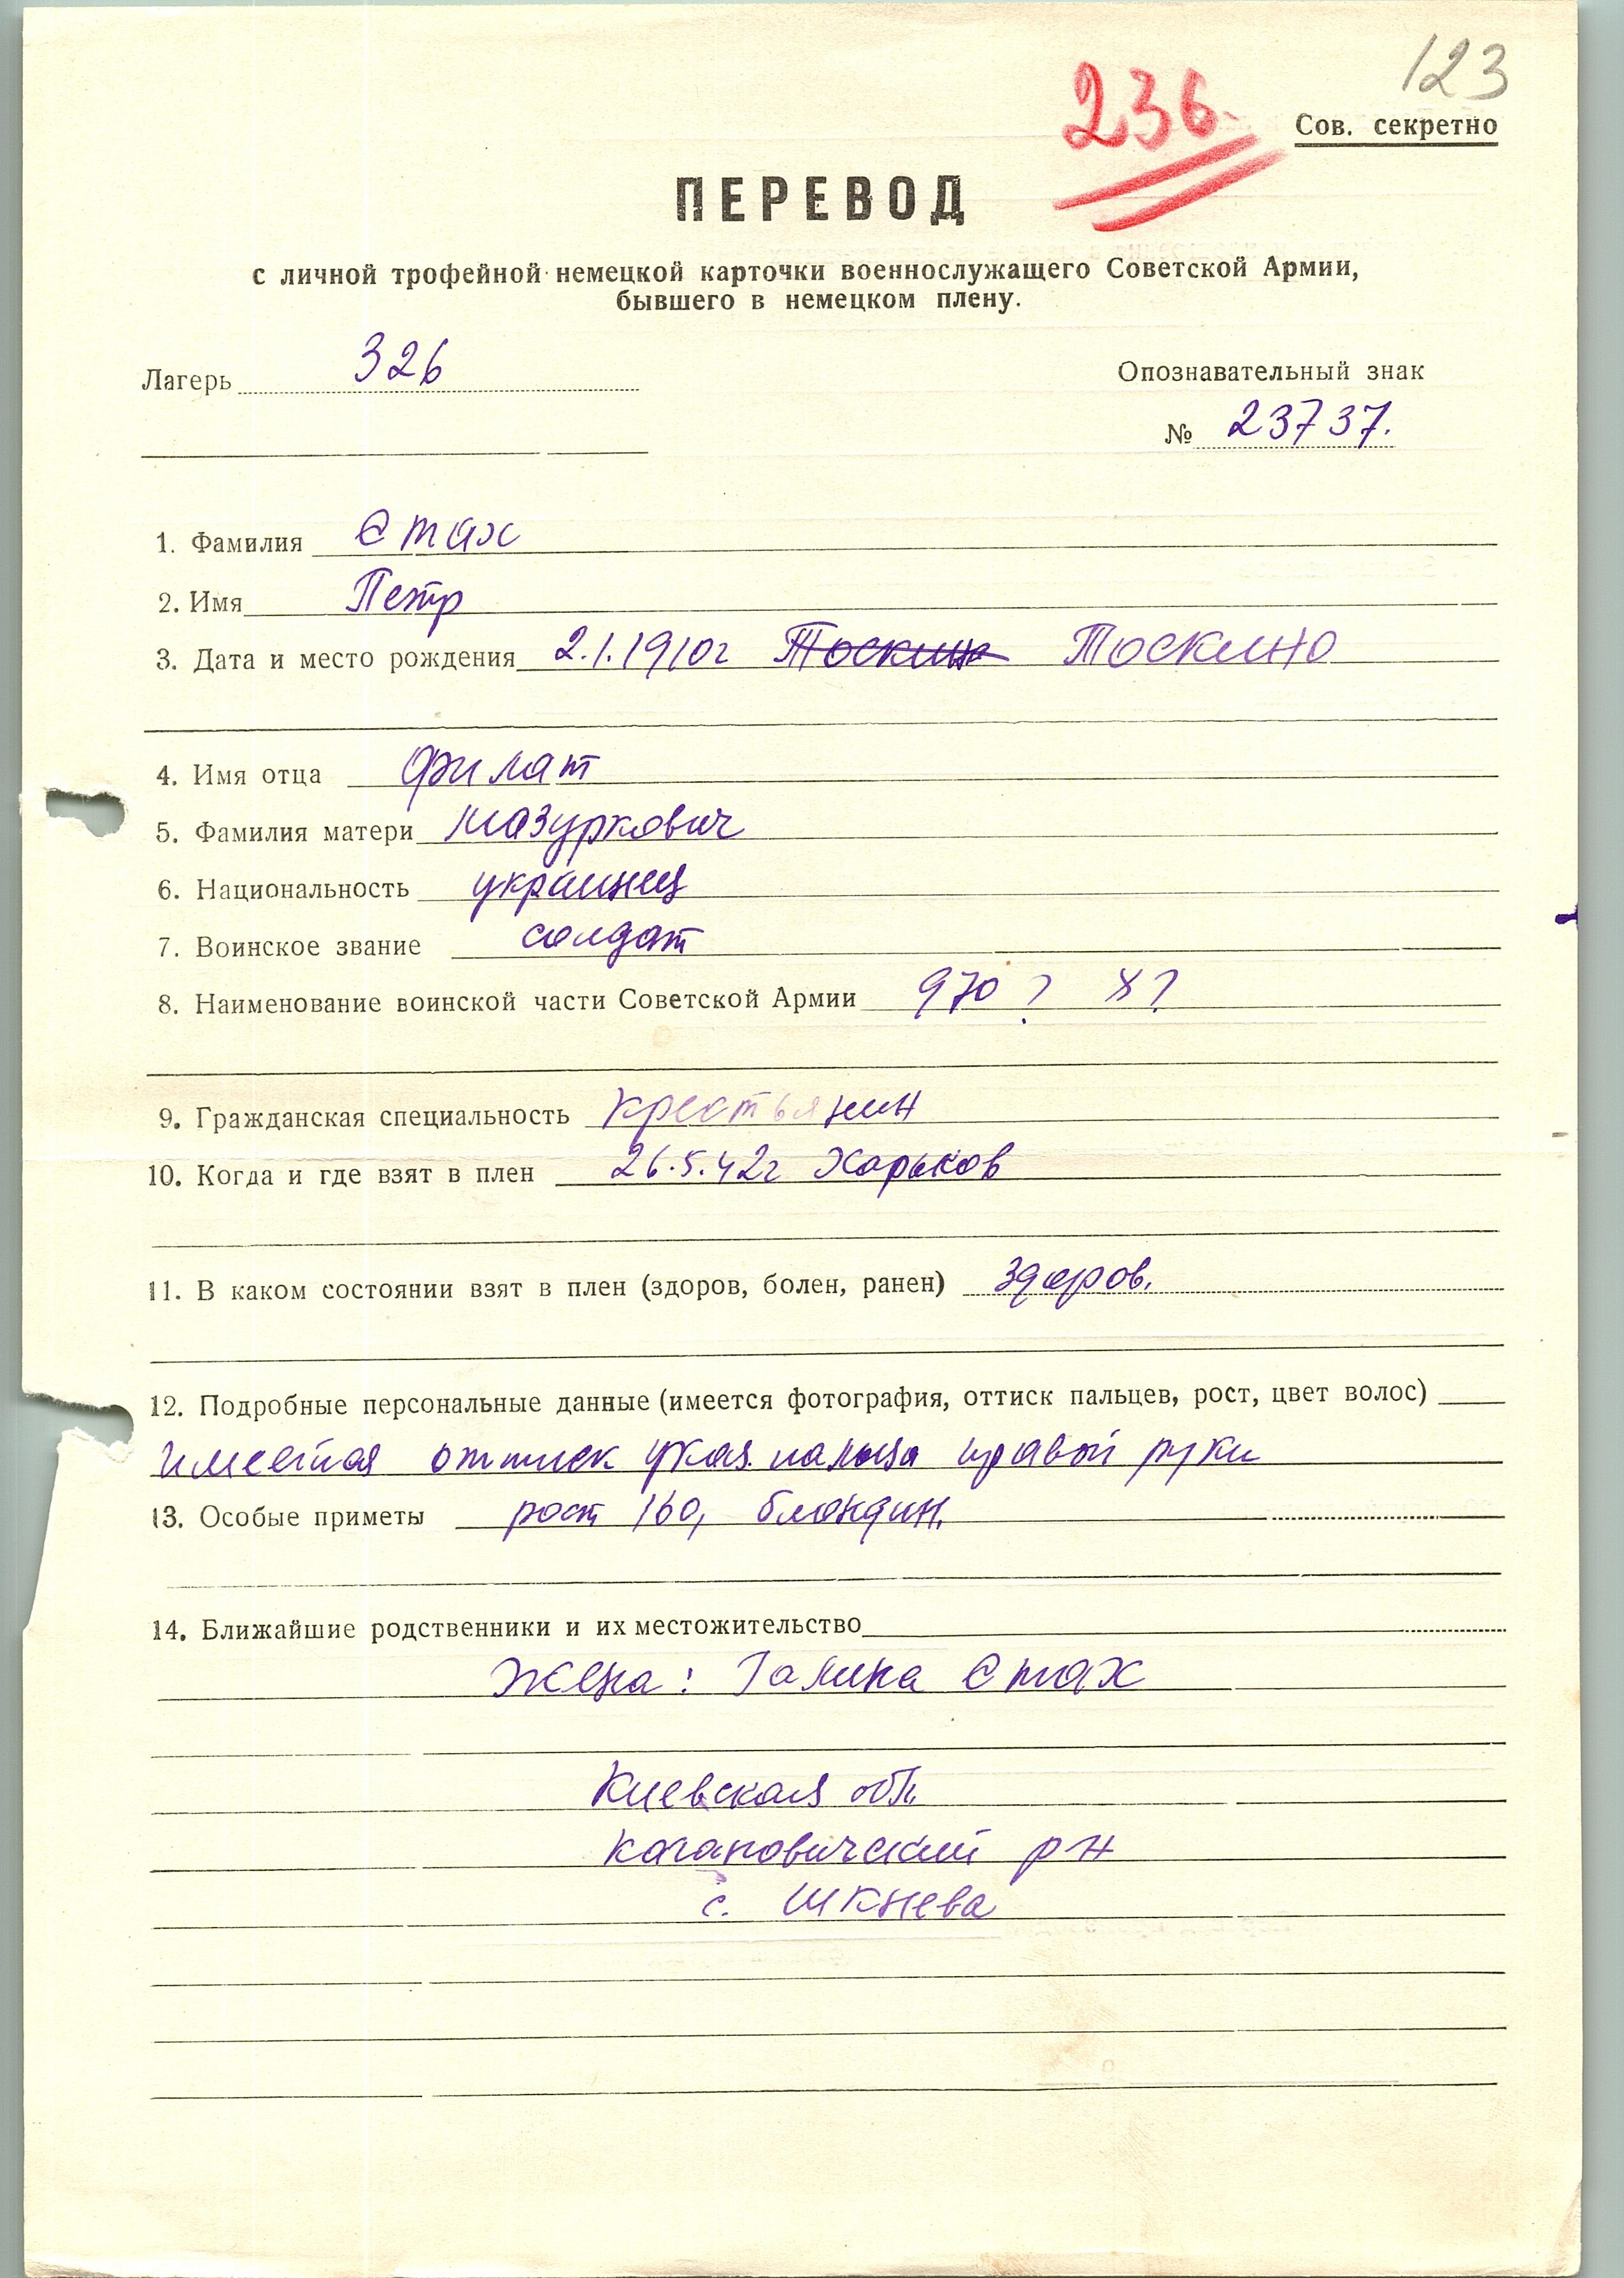 123
236.
Сов. секретно
ПЕРЕВОД
с личной трофейной немецкой карточки военнослужащего Советской Армии,
бывшего в немецком плену.
Лагерь 326
Опознавательный знак
№ 23737.
1. Фамилия Стах
2. Имя Петр
3. Дата и место рождения 2.1.1910г Тоскина Тоскино
4. Имя отца Филат
5. Фамилия матери Мазуркович
6. Национальность украинец
7. Воинское звание солдат
8. Наименование воинской части Советской Армии 970 ? X?
9. Гражданская специальность крестьянин
10. Когда и где взят в плен 26.5.42г Харьков
11. В каком состоянии взят в плен (здоров, болен, ранен) здоров.
12. Подробные персональные данные (имеется фотография, оттиск пальцев, рост, цвет волос)
имеется оттиск указ. пальца правой руки
13. Особые приметы рост 160, блондин.
14. Ближайшие родственники и их местожительство
Жена: Галина Стах
Киевская обл.
Кагановический р-н
с. Шкнева